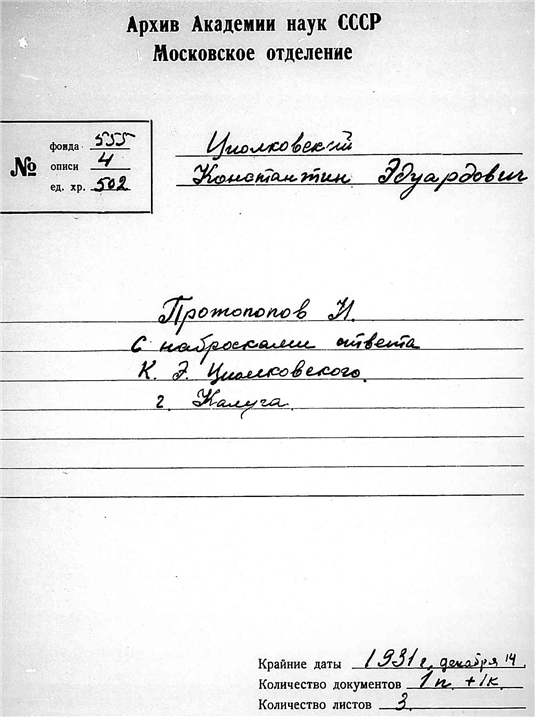 Архив Академии наук СССР
Московское отделение
№
фонда 555
описи 4
ед. хр. 502
Циолковский
Константин Эдуардович
Протопопов И.
С набросками ответа
К. Э. Циолковского.
г. Калуга.
Крайние даты 1931 г. декабря 14.
Количество документов 1 п. + 1 к.
Количество листов 3.